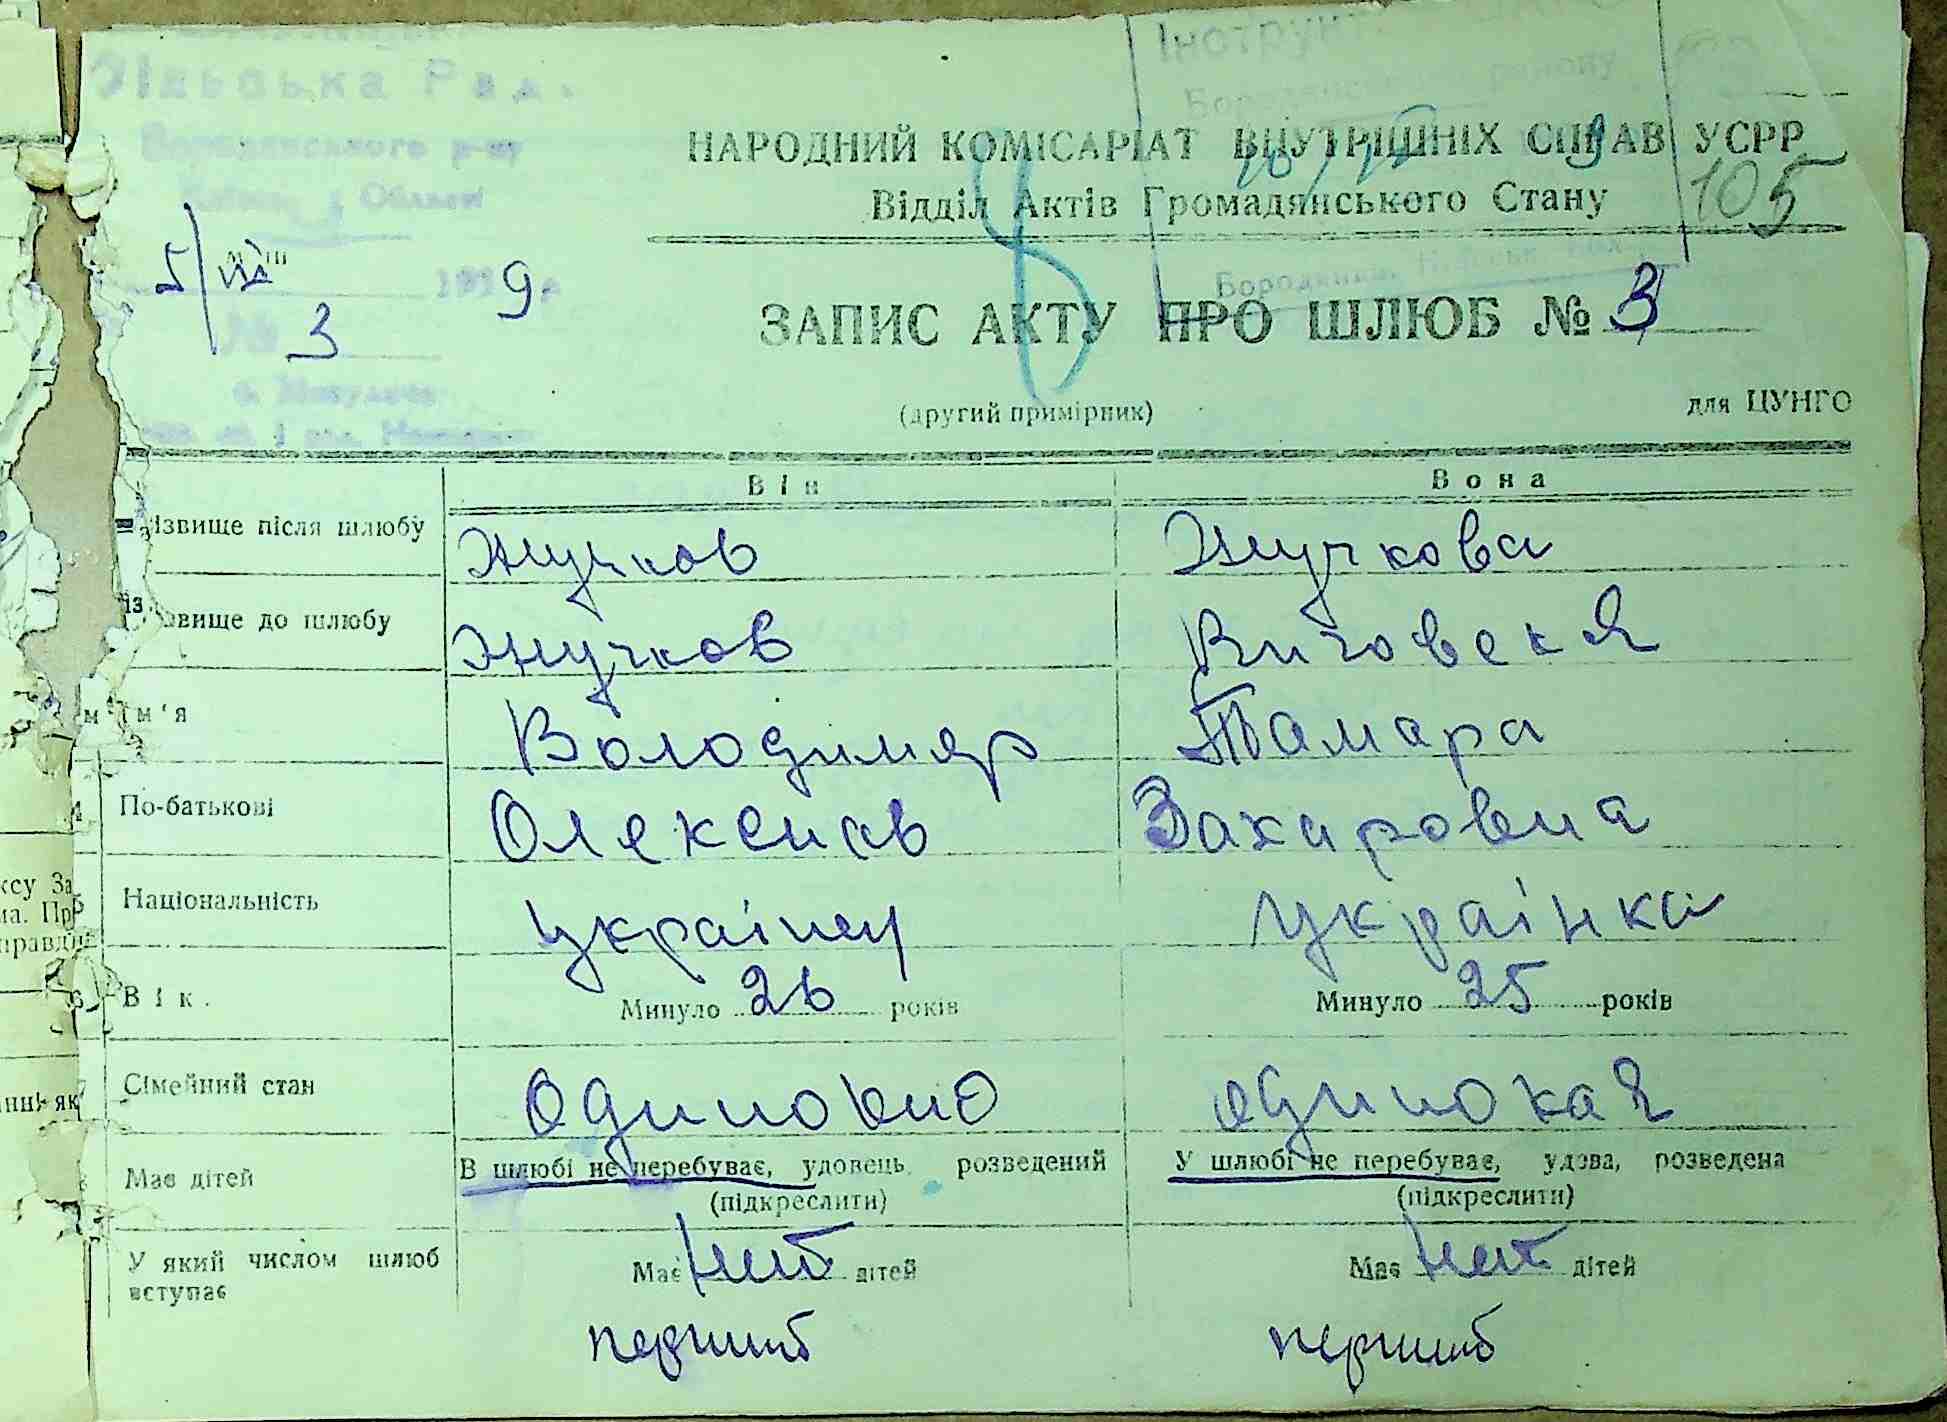 Рад.
Бородянського р-ну
Області
Інструк
Бородянськ району
НАРОДНИЙ КОМІСАРІАТ ВНУТРІШНІХ СПРАВ УСРР
Відділ Актів Громадянського Стану
105
5/VIII 1939 р
№ 3
ЗАПИС АКТУ ПРО ШЛЮБ № 3
(другий примірник)
для ЦУНГО
Він Вона
ізвище після шлюбу Жучков Жучкова
ізвище до шлюбу Жучков Виговская
м'я Володимер Тамара
4 По-батькові Олексиев Захаровна
Національність украінец украінка
6 Вік. Минуло 26 років Минуло 25 років
7 Сімейний стан одинокий одинокая
Має дітей В шлюбі не перебуває, удовець розведений У шлюбі не перебуває, удова, розведена
(підкреслити) (підкреслити)
У який числом шлюб вступає Має нит дітей Має нет дітей
перший перший
ксу За
ма. Пр